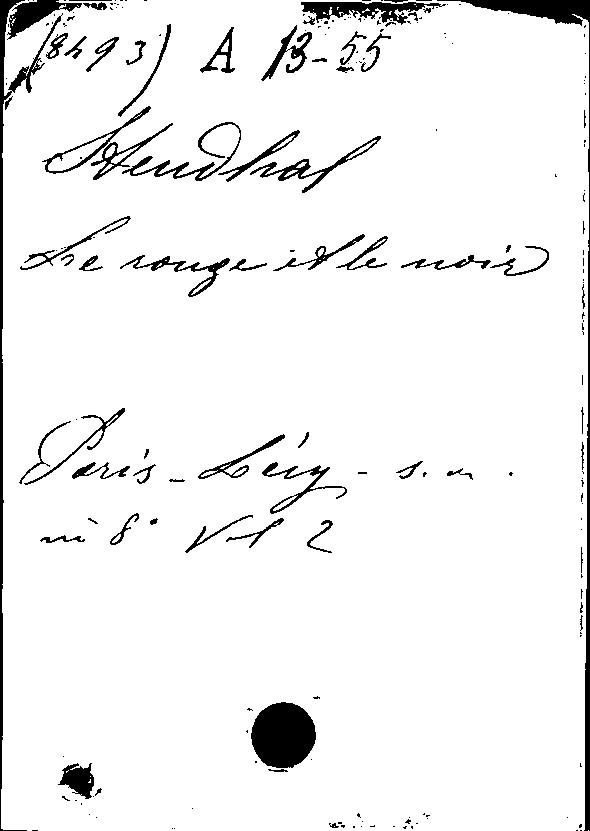 (8493) A 13-55
Stendhal
Le rouge et le noir
Paris - Lévy - s. a.
in 8° Vol 2